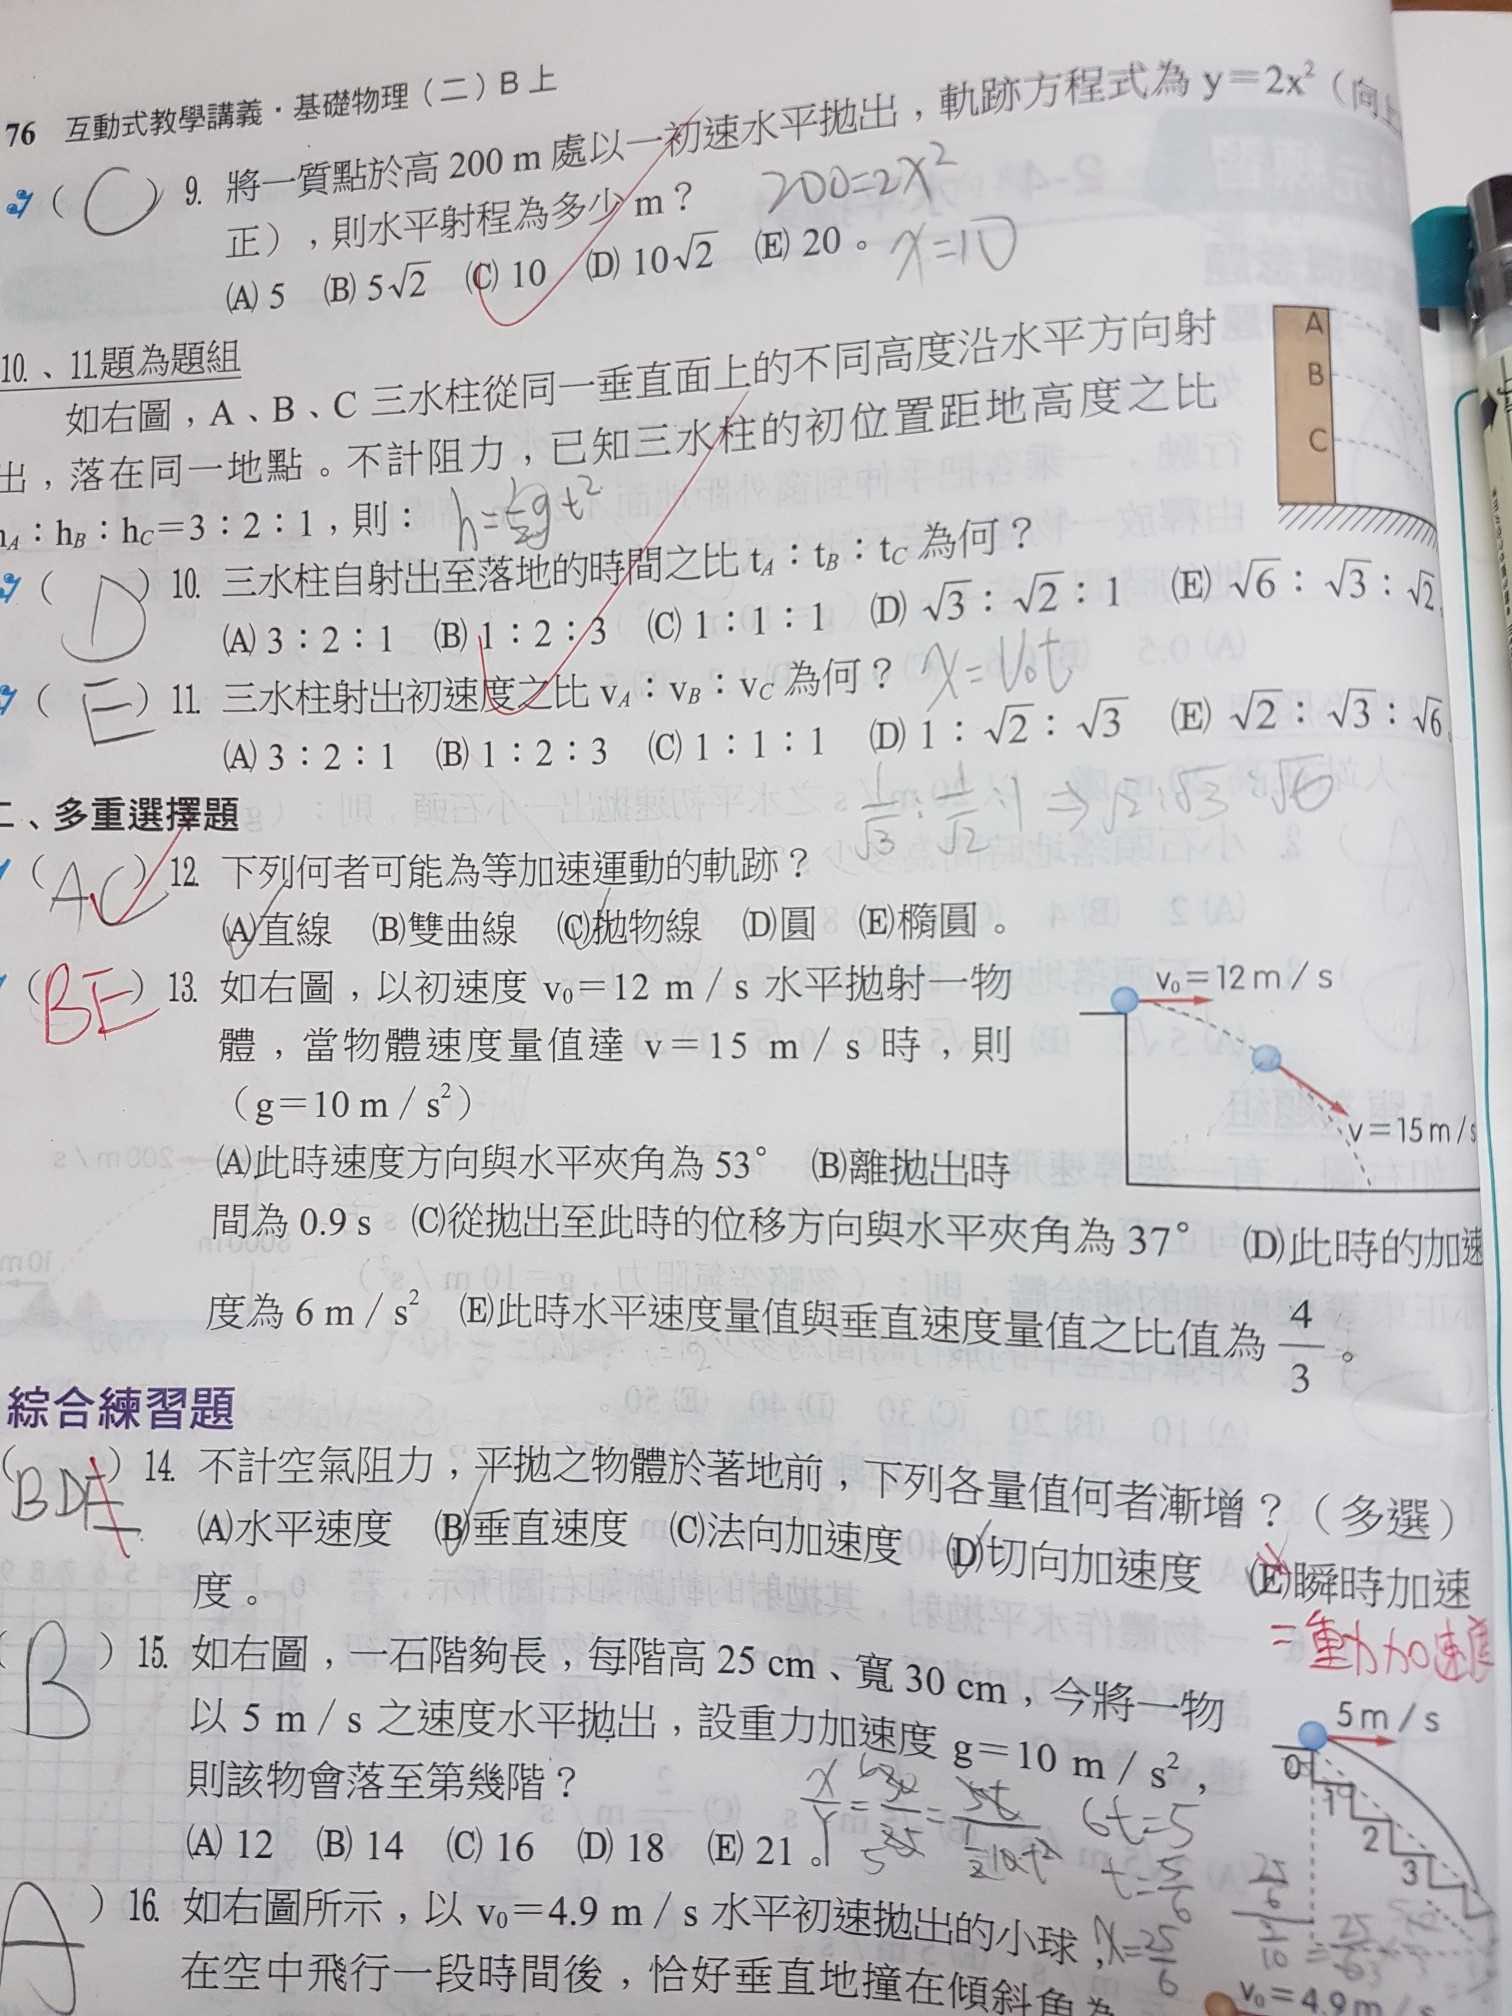 76 互動式教學講義・基礎物理（二）B 上
( C ) 9. 將一質點於高 200 m 處以一初速水平拋出，軌跡方程式為 y＝2x²（向上
正），則水平射程為多少 m？ 200=2x²
(A) 5 (B) 5√2 (C) 10 (D) 10√2 (E) 20。 x=10
10.、11.題為題組
如右圖，A、B、C 三水柱從同一垂直面上的不同高度沿水平方向射
出，落在同一地點。不計阻力，已知三水柱的初位置距地高度之比
hA：hB：hC＝3：2：1，則： h=½gt²
A
B
C
( D ) 10. 三水柱自射出至落地的時間之比 tA：tB：tC 為何？
(A) 3：2：1 (B) 1：2：3 (C) 1：1：1 (D) √3：√2：1 (E) √6：√3：√2
( E ) 11. 三水柱射出初速度之比 vA：vB：vC 為何？ x=V₀t
(A) 3：2：1 (B) 1：2：3 (C) 1：1：1 (D) 1：√2：√3 (E) √2：√3：√6
1/√3 : 1/√2 : 1 ⇒ √2:√3:√6
二、多重選擇題
( AC ) 12. 下列何者可能為等加速運動的軌跡？
(A)直線 (B)雙曲線 (C)拋物線 (D)圓 (E)橢圓。
( BE ) 13. 如右圖，以初速度 v₀＝12 m / s 水平拋射一物
體，當物體速度量值達 v＝15 m / s 時，則
（g＝10 m / s²）
v₀＝12 m / s
v＝15 m / s
(A)此時速度方向與水平夾角為 53° (B)離拋出時
間為 0.9 s (C)從拋出至此時的位移方向與水平夾角為 37° (D)此時的加速
度為 6 m / s² (E)此時水平速度量值與垂直速度量值之比值為 4/3。
綜合練習題
( BDE ) 14. 不計空氣阻力，平拋之物體於著地前，下列各量值何者漸增？（多選）
(A)水平速度 (B)垂直速度 (C)法向加速度 (D)切向加速度 (E)瞬時加速
度。
=重力加速度
( B ) 15. 如右圖，一石階夠長，每階高 25 cm、寬 30 cm，今將一物
以 5 m / s 之速度水平拋出，設重力加速度 g＝10 m / s²，
則該物會落至第幾階？
(A) 12 (B) 14 (C) 16 (D) 18 (E) 21。
5 m / s
0
1
2
3
6t=5
t=5/6
x=25/6
( A ) 16. 如右圖所示，以 v₀＝4.9 m / s 水平初速拋出的小球，
在空中飛行一段時間後，恰好垂直地撞在傾斜角為
v₀＝4.9 m /